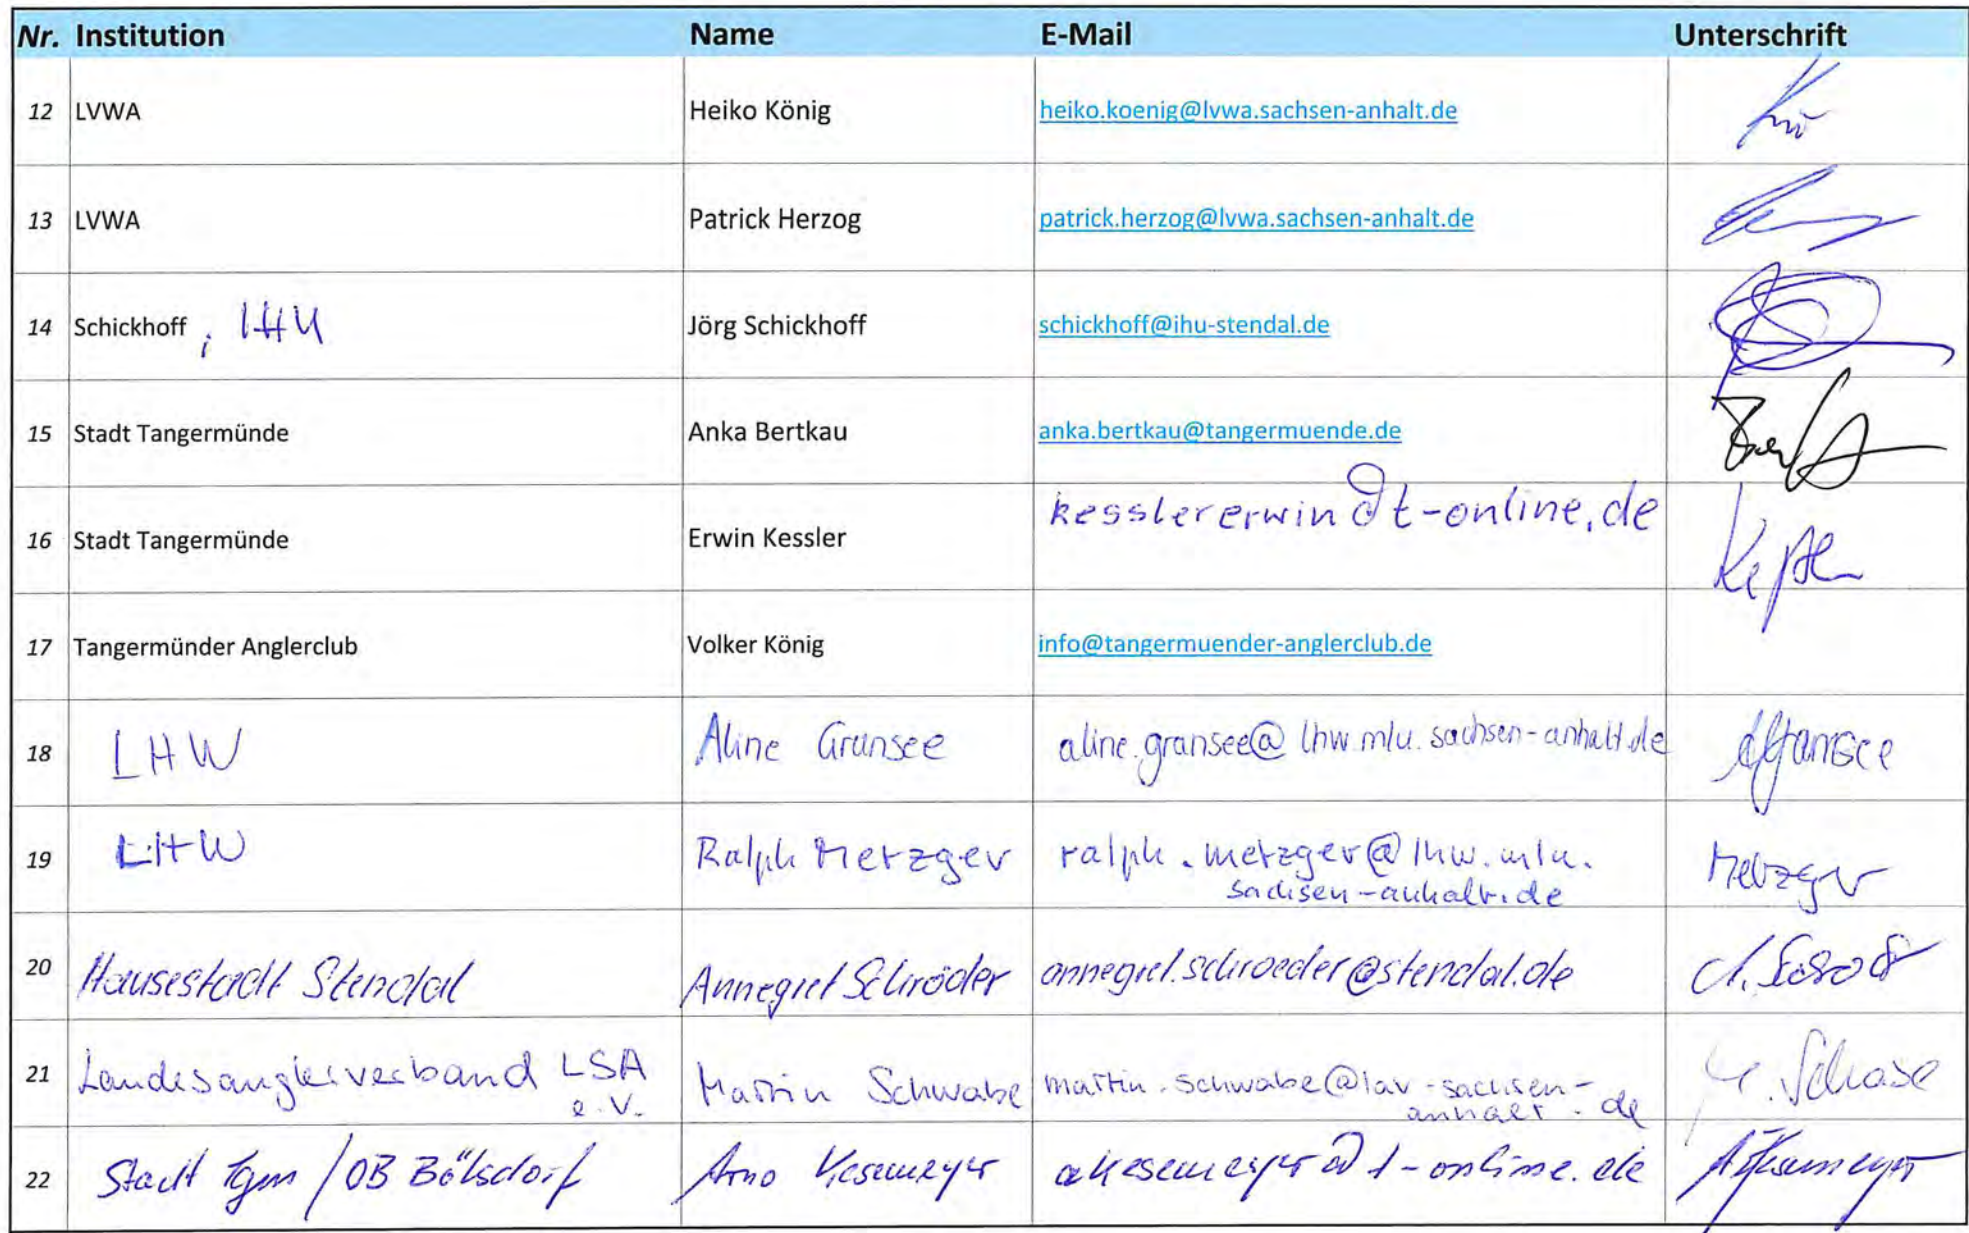 Nr. Institution Name E-Mail Unterschrift
12 LVWA Heiko König heiko.koenig@lvwa.sachsen-anhalt.de
13 LVWA Patrick Herzog patrick.herzog@lvwa.sachsen-anhalt.de
14 Schickhoff , IHU Jörg Schickhoff schickhoff@ihu-stendal.de
15 Stadt Tangermünde Anka Bertkau anka.bertkau@tangermuende.de
16 Stadt Tangermünde Erwin Kessler kesslererwin@t-online.de
17 Tangermünder Anglerclub Volker König info@tangermuender-anglerclub.de
18 LHW Aline Gransee aline.gransee@lhw.mlu.sachsen-anhalt.de AGransee
19 LHW Ralph Metzger ralph.metzger@lhw.mlu.
sachsen-anhalt.de Metzger
20 Hansestadt Stendal Annegret Schröder annegret.schroeder@stendal.de
21 Landesanglerverband LSA
e.V. Martin Schwabe martin.schwabe@lav-sachsen-
anhalt.de
22 Stadt Tgm / OB Bölsdorf Arno Kesemeyer akesemeyer@t-online.de